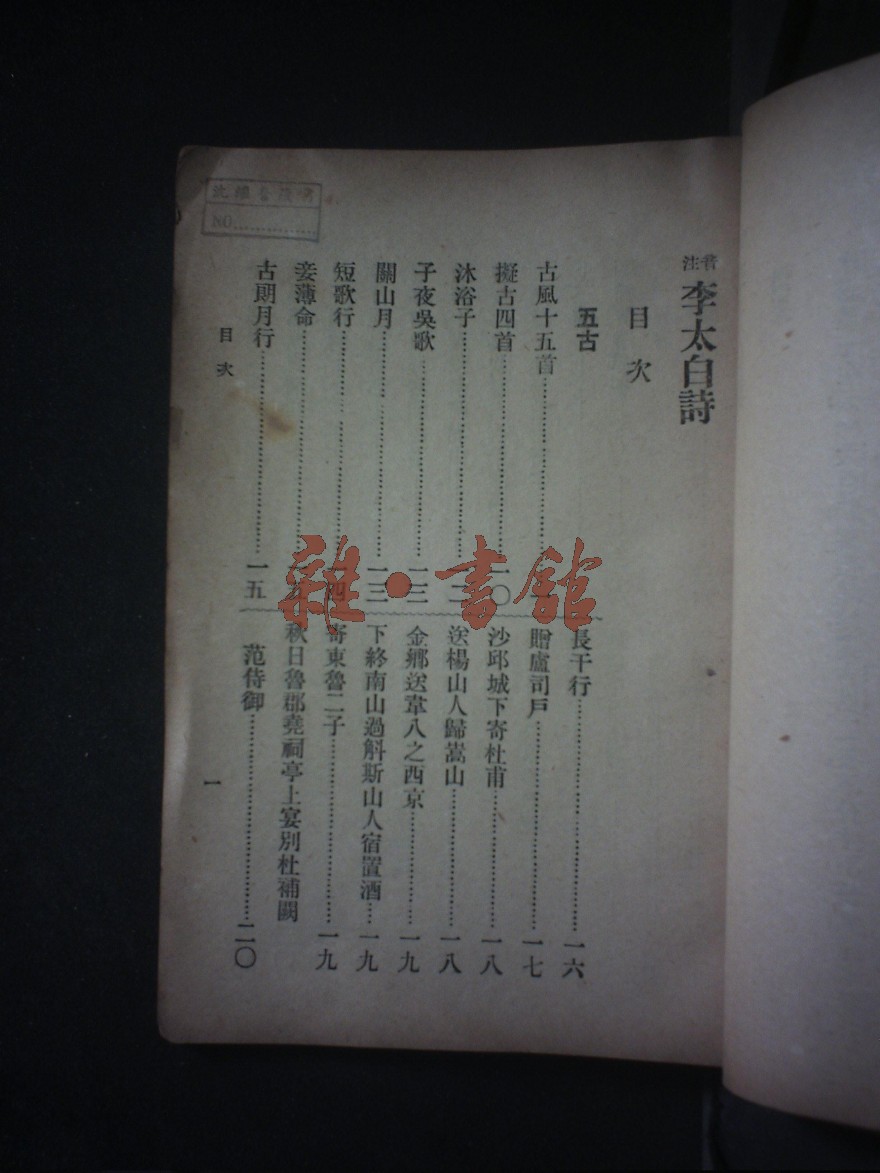 音注 李太白詩
目次
五古
古風十五首
擬古四首……一〇
沐浴子……一二
子夜吳歌……一三
關山月……一三
短歌行……一四
妾薄命
古朗月行……一五
長干行……一六
贈盧司戶……一七
沙邱城下寄杜甫……一八
送楊山人歸嵩山……一八
金鄉送韋八之西京……一九
下終南山過斛斯山人宿置酒……一九
寄東魯二子……一九
秋日魯郡堯祠亭上宴別杜補闕
范侍御……二〇
目次
一
NO.
雜·書館